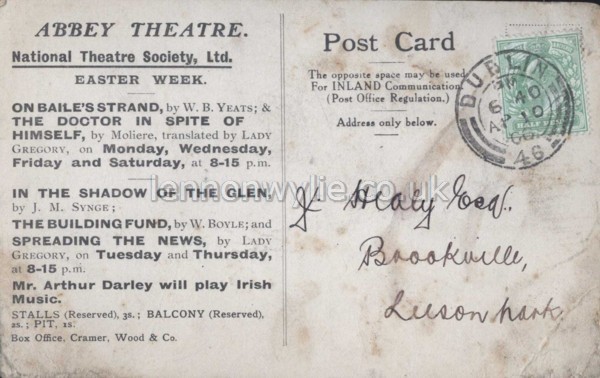 ABBEY THEATRE.
National Theatre Society, Ltd.
EASTER WEEK.
ON BAILE'S STRAND, by W. B. YEATS; &
THE DOCTOR IN SPITE OF
HIMSELF, by Moliere, translated by LADY
GREGORY, on Monday, Wednesday,
Friday and Saturday, at 8-15 p.m.
IN THE SHADOW OF THE GLEN,
by J. M. SYNGE;
THE BUILDING FUND, by W. BOYLE; and
SPREADING THE NEWS, by LADY
GREGORY, on Tuesday and Thursday,
at 8-15 p.m.
Mr. Arthur Darley will play Irish
Music.
STALLS (Reserved), 3s.; BALCONY (Reserved),
2s.; PIT, 1s.
Box Office, Cramer, Wood & Co.
Post Card
The opposite space may be used
For INLAND Communication
(Post Office Regulation.)
Address only below.
DUBLIN
6 40
AP 10
46
Healy Esq.,
Brookville,
Leeson park.
lennonwylie.co.uk